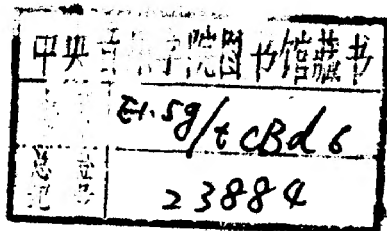 中央音乐学院图书馆藏书
E1.5g/tcBd6
总号
23884